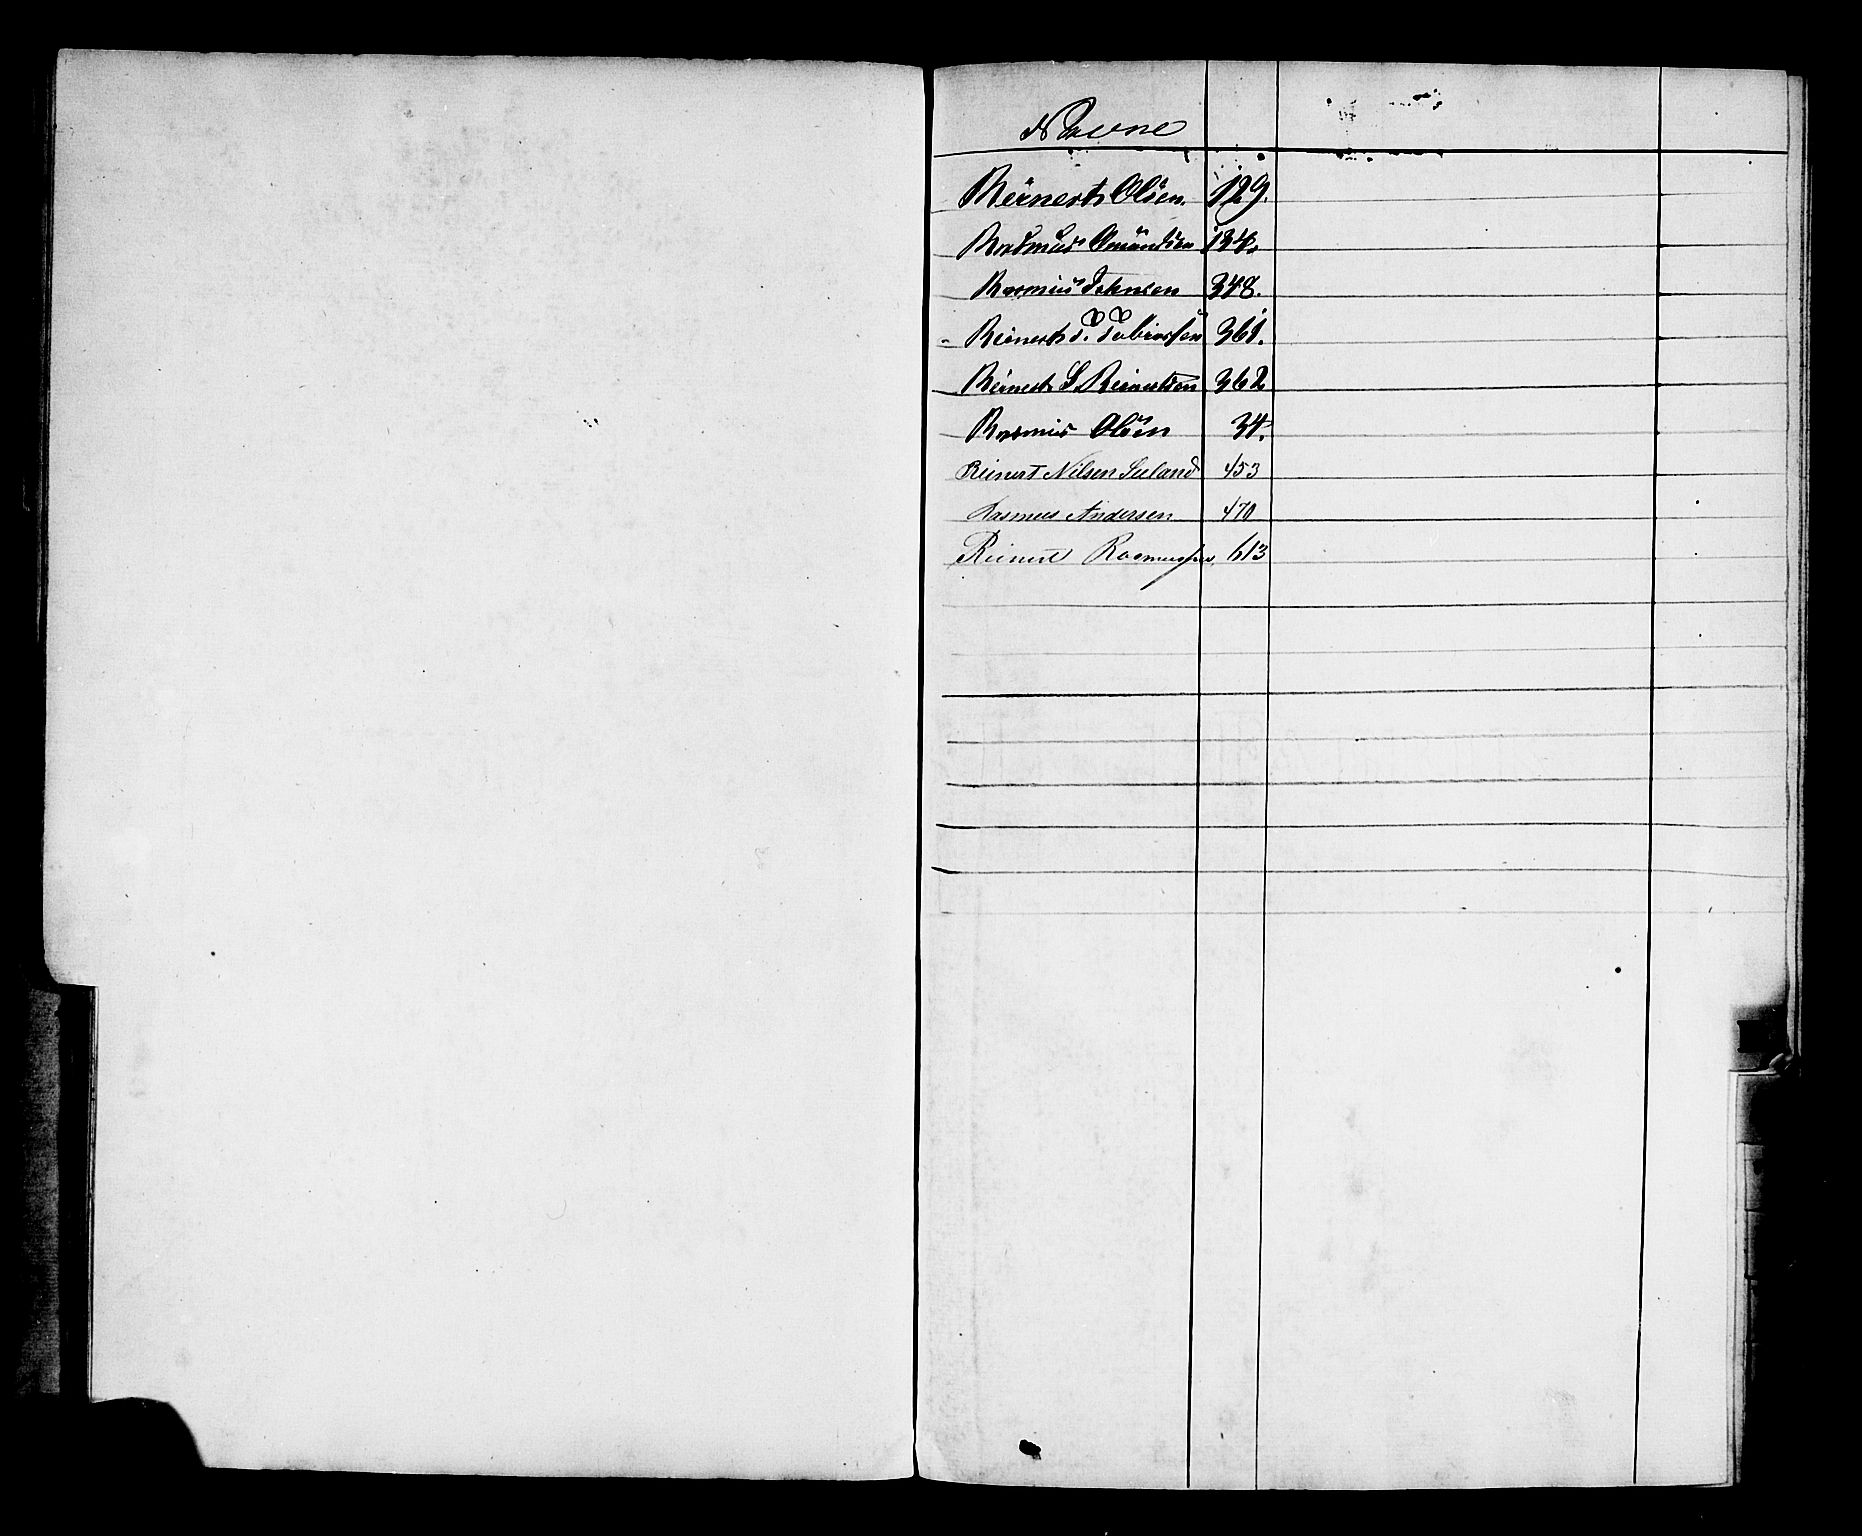 Navne
Reinert Olsen. 129.
Rasmus Omundsen 134.
Rasmus Johnsen 348.
Reinert T. Tobiassen 361.
Reinert S. Reinertsen 362
Rasmus Olsen 34.
Reinert Nilsen Seland 453
Rasmus Andersen 470
Reinert Rasmussen, 613